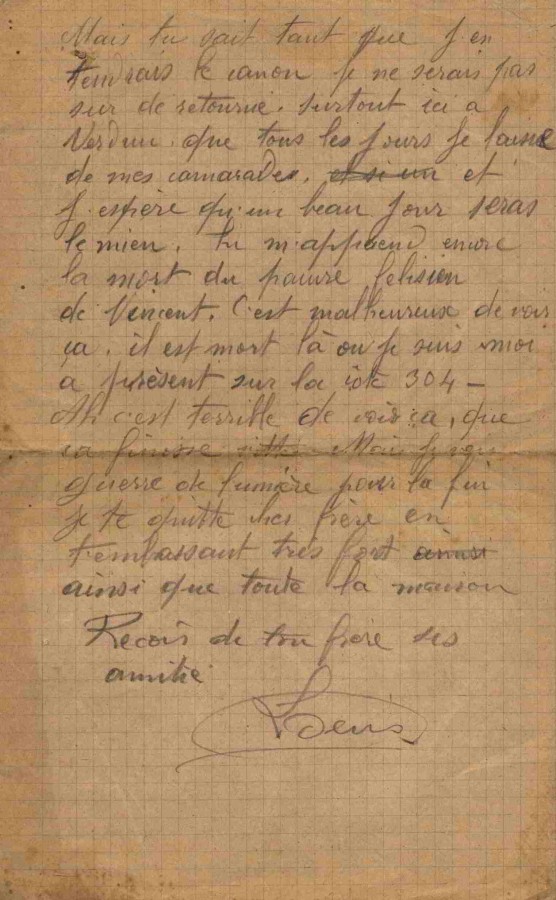 Mais tu sait tant que j'en
tendrais le canon je ne serais pas
sur de retourné. surtout ici a
Verdun. que tous les jours je laisse
de mes camarades. et si un et
j'espère qu'un beau jour seras
le mien. tu m'apprend encore
la mort du pauvre felisien
de Vincent. C'est malheureux de voir
ça. il est mort là ou je suis moi
a présent sur la cote 304 –
Ah c'est terrible de voir ça, que
ça finisse vitte. Mais je vois
guerre de lumière pour la fin
je te quitte cher frère en
t'embrassant très fort ainsi
ainsi que toute la maison
Recois de ton frère ses
amitié